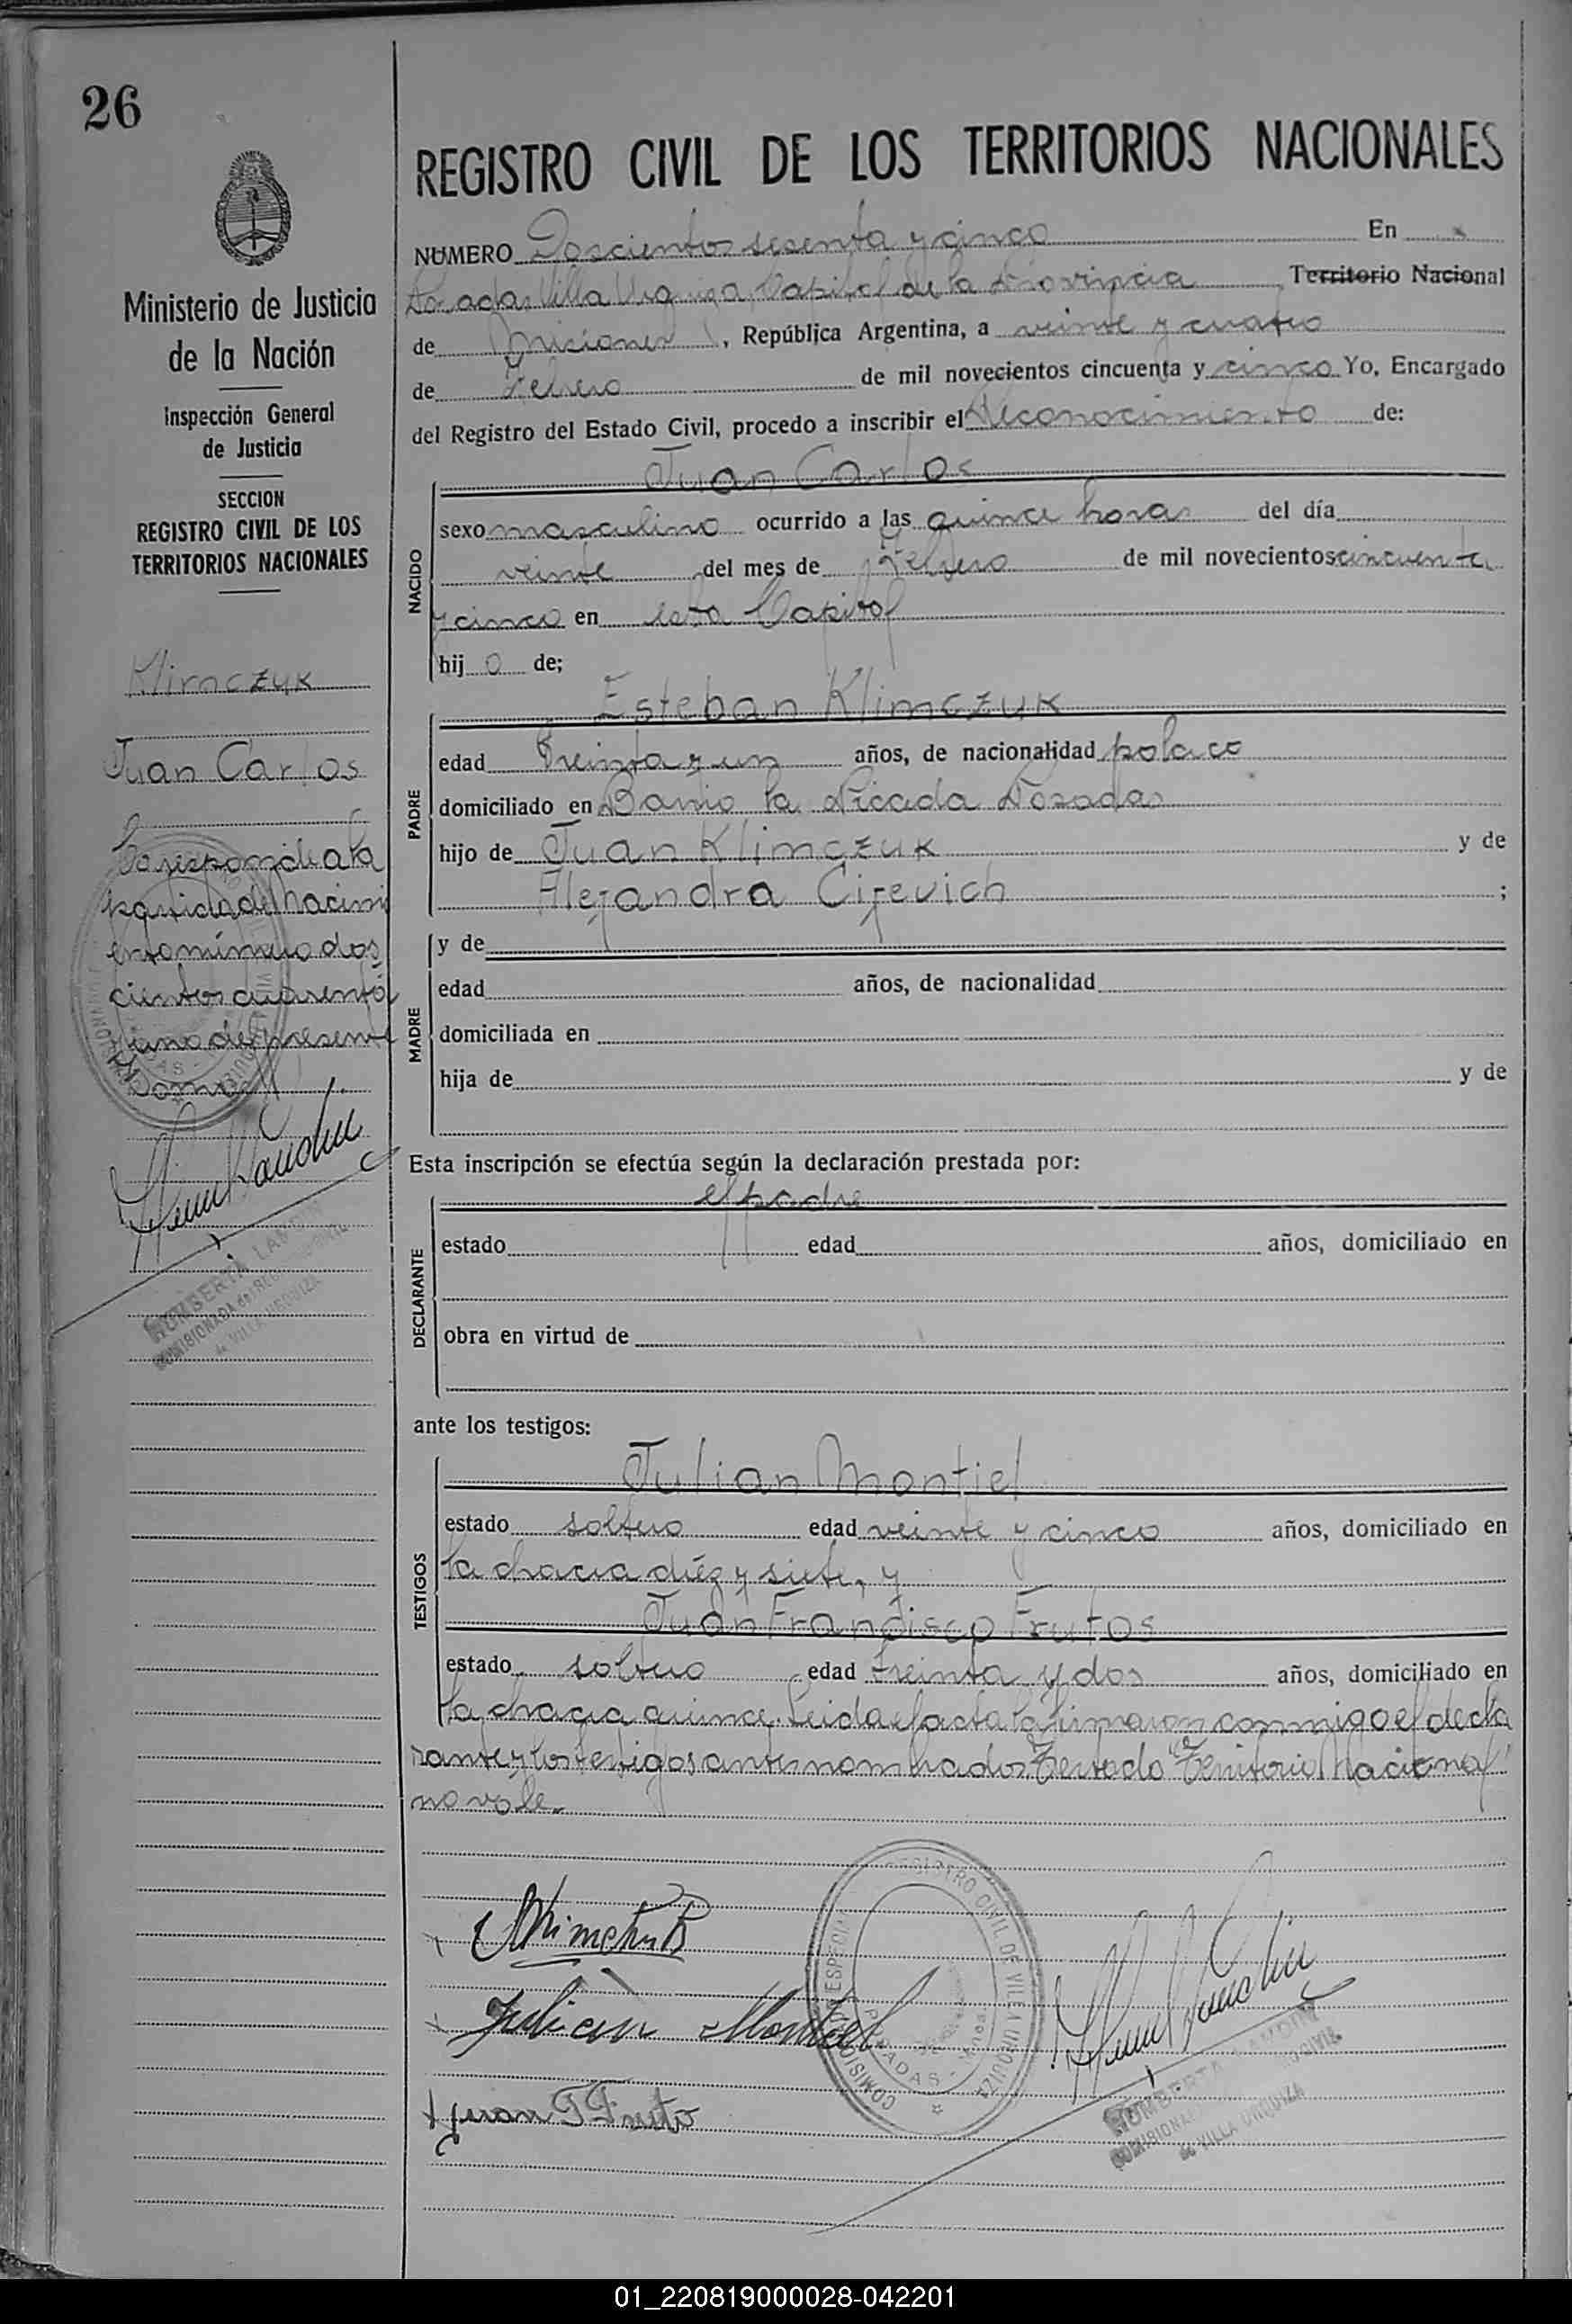 26
Ministerio de Justicia
de la Nación
Inspección General
de Justicia
SECCION
REGISTRO CIVIL DE LOS
TERRITORIOS NACIONALES
Klimczuk
Juan Carlos
Corresponde a la
partida de Nacimi
ento número dos
cientos cuarenta
y uno del presente
tomo.
HUMBERTA LANDIN
COMISIONADA del REGISTRO CIVIL
de VILLA URQUIZA
REGISTRO CIVIL DE LOS TERRITORIOS NACIONALES
NUMERO Doscientos sesenta y cinco En
Posadas, Villa Urquiza, Capital de la Provincia Territorio Nacional
de Misiones, República Argentina, a veinte y cuatro
de Febrero de mil novecientos cincuenta y cinco Yo, Encargado
del Registro del Estado Civil, procedo a inscribir el Reconocimiento de:
NACIDO
Juan Carlos
sexo masculino ocurrido a las quince horas del día
veinte del mes de Febrero de mil novecientos cincuenta
y cinco en esta Capital
hij o de;
PADRE
Esteban Klimczuk
edad Treinta y un años, de nacionalidad polaco
domiciliado en Barrio la Picada Posadas
hijo de Juan Klimczuk y de
Alejandra Cijevich ;
MADRE
y de
edad años, de nacionalidad
domiciliada en
hija de y de
Esta inscripción se efectúa según la declaración prestada por:
DECLARANTE
el padre
estado edad años, domiciliado en
obra en virtud de
ante los testigos:
TESTIGOS
Julian Montiel
estado soltero edad veinte y cinco años, domiciliado en
la chacra diez y siete, y
Juan Francisco Frutos
estado soltero edad treinta y dos años, domiciliado en
la chacra quince. Leida el acta la firmaron conmigo el decla
rante y los testigos antes nombrados. Testado "Territorio Nacional"
no vale.
Julián Montiel
Juan F Fruto
COMISION ESPECIAL REGISTRO CIVIL DE VILLA URQUIZA
POSADAS
HUMBERTA LANDIN
COMISIONADA del REGISTRO CIVIL
de VILLA URQUIZA
01_220819000028-042201